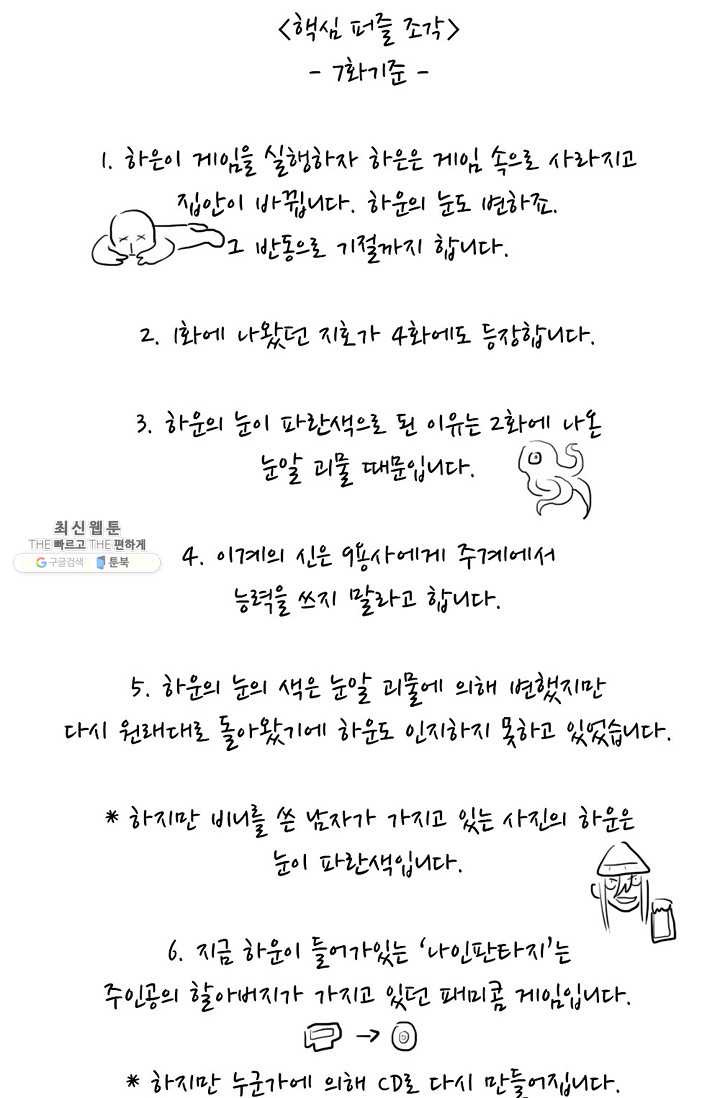 <핵심 퍼즐 조각>
- 7화기준 -
1. 하은이 게임을 실행하자 하은은 게임 속으로 사라지고
집안이 바뀝니다. 하운의 눈도 변하죠.
그 반동으로 기절까지 합니다.
2. 1화에 나왔던 지호가 4화에도 등장합니다.
3. 하운의 눈이 파란색으로 된 이유는 2화에 나온
눈알 괴물 때문입니다.
최신웹툰
THE 빠르고 THE 편하게
구글검색 툰북
4. 이계의 신은 9용사에게 주계에서
능력을 쓰지 말라고 합니다.
5. 하운의 눈의 색은 눈알 괴물에 의해 변했지만
다시 원래대로 돌아왔기에 하운도 인지하지 못하고 있었습니다.
* 하지만 비니를 쓴 남자가 가지고 있는 사진의 하운은
눈이 파란색입니다.
6. 지금 하운이 들어가있는 '나인판타지'는
주인공의 할아버지가 가지고 있던 패미콤 게임입니다.
* 하지만 누군가에 의해 CD로 다시 만들어집니다.